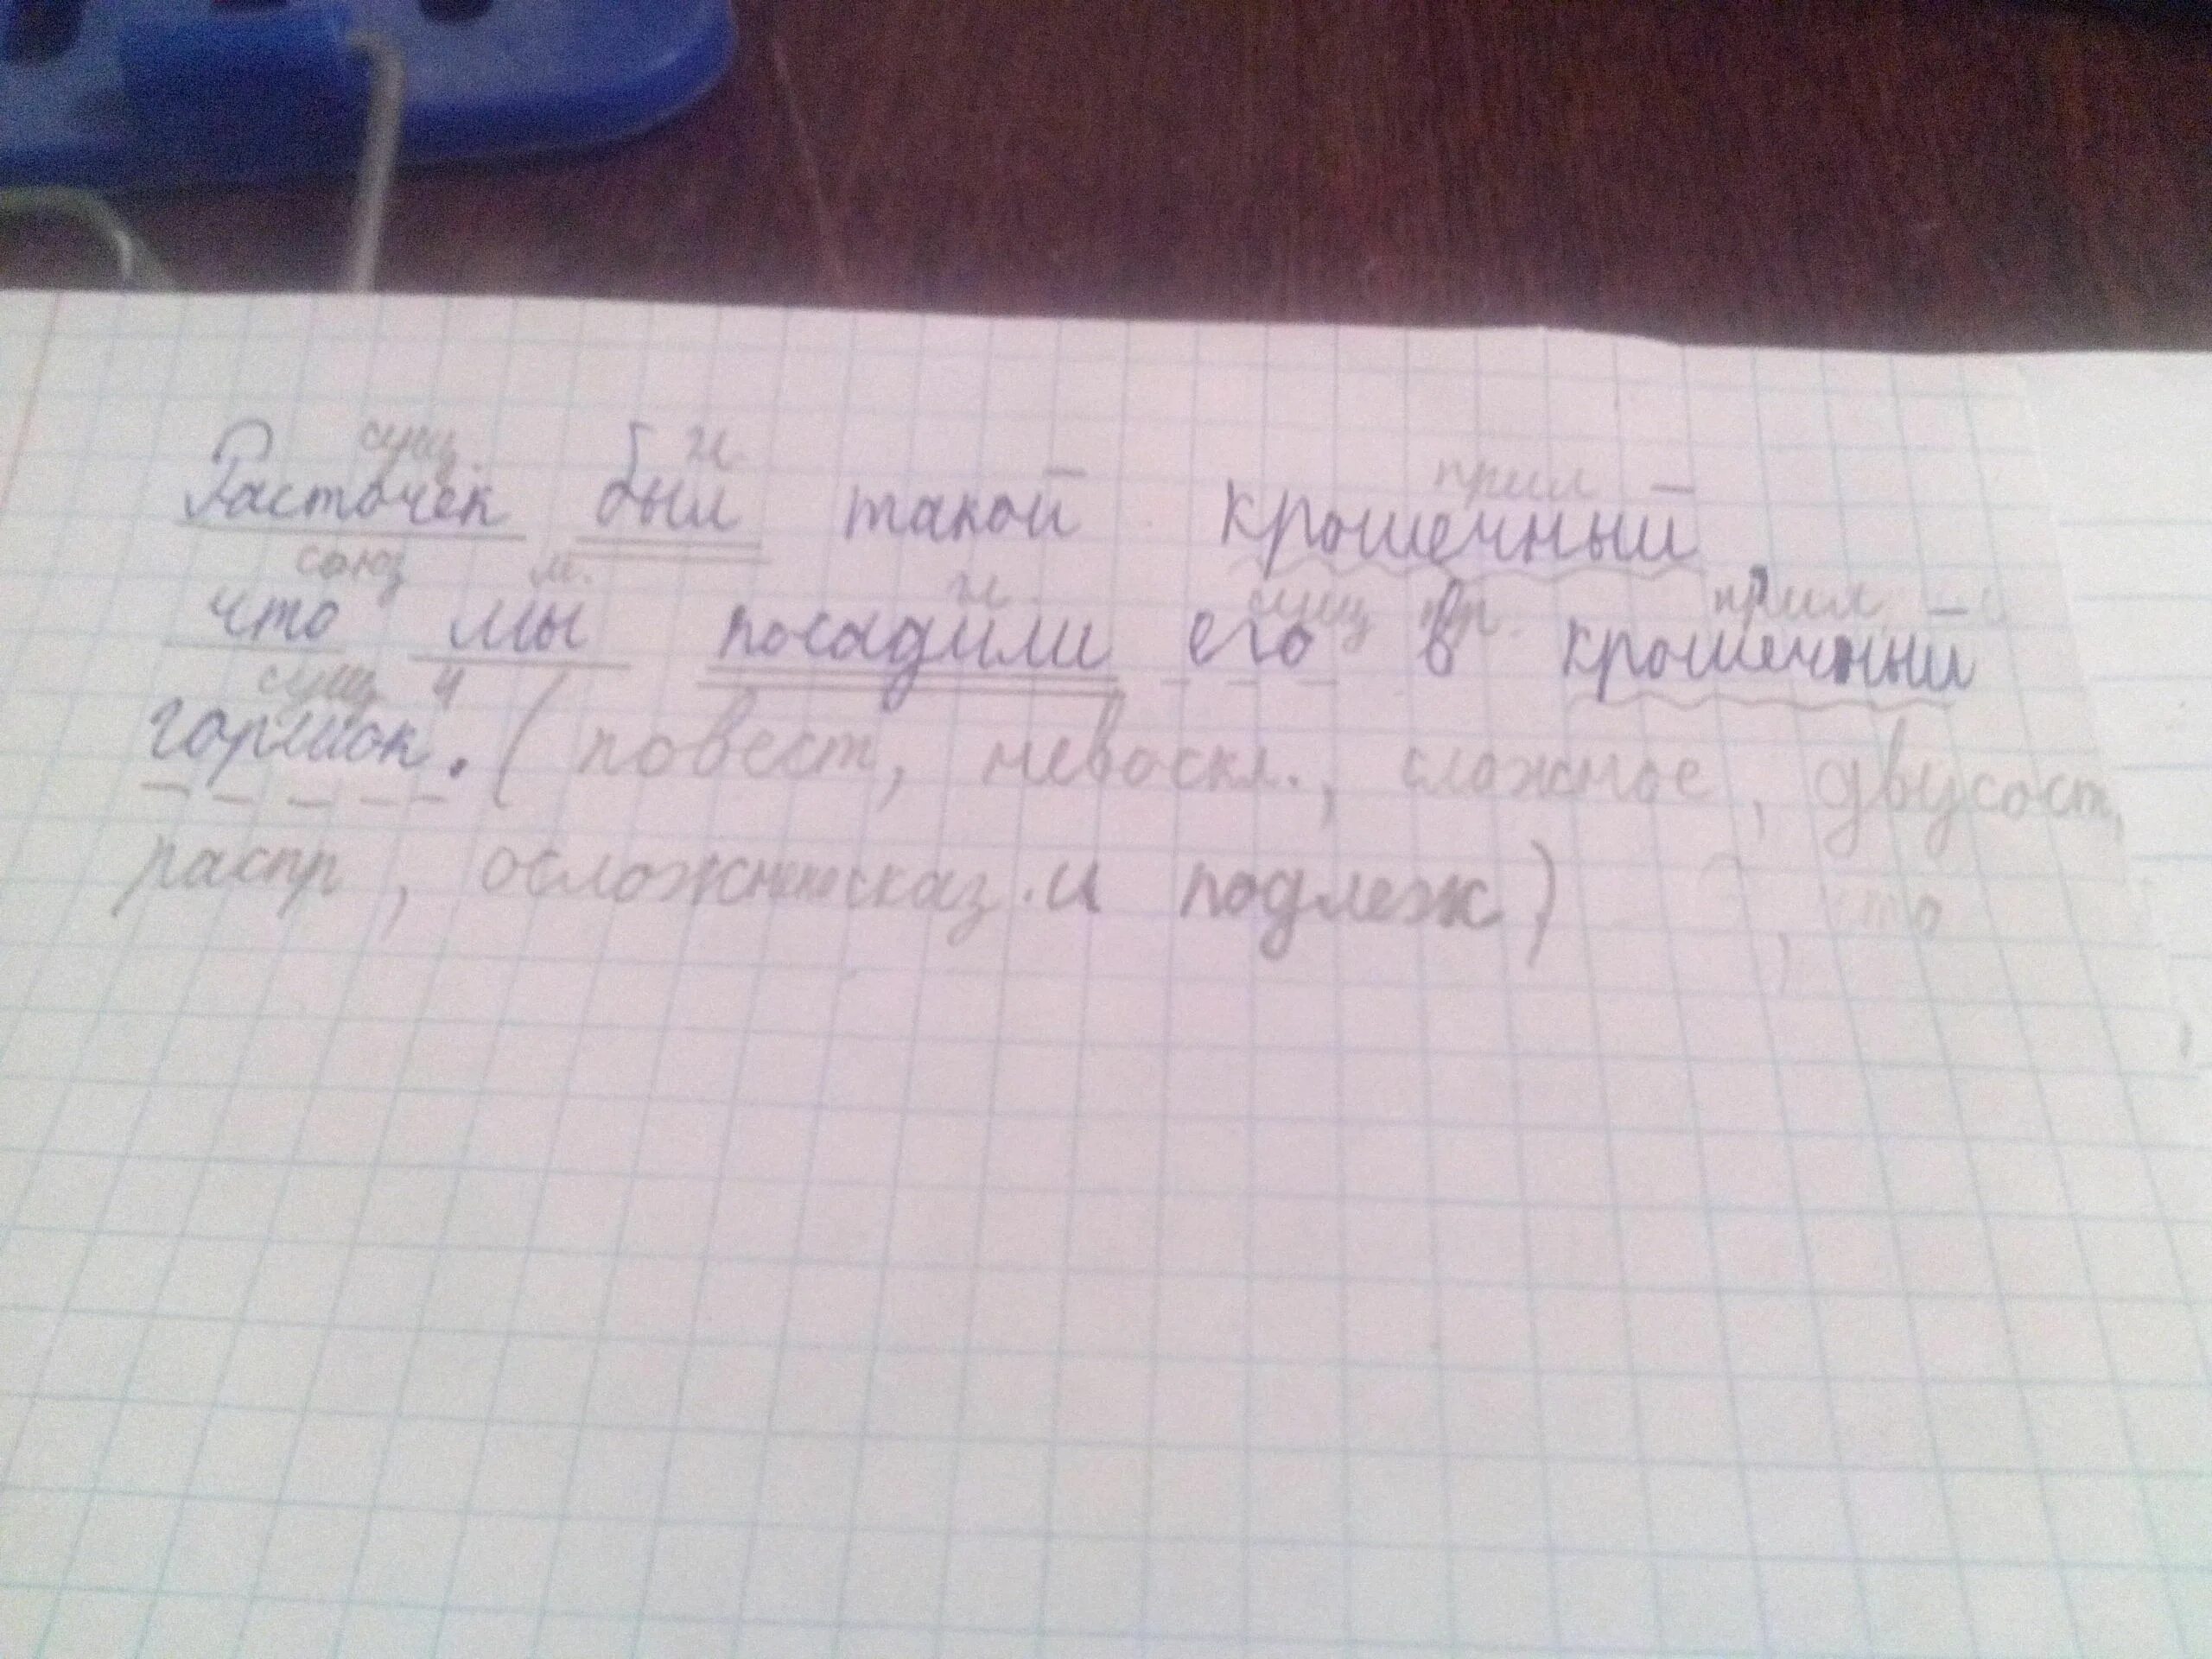 сущ. гл.
прил
Расточек был такой крошечный,
союз м. гл. сущ пр. прил
что мы посадили его в крошечный
сущ
горшок. (повест, невоскл., сложное, двусост,
распр, осложнен сказ. и подлеж)
, что